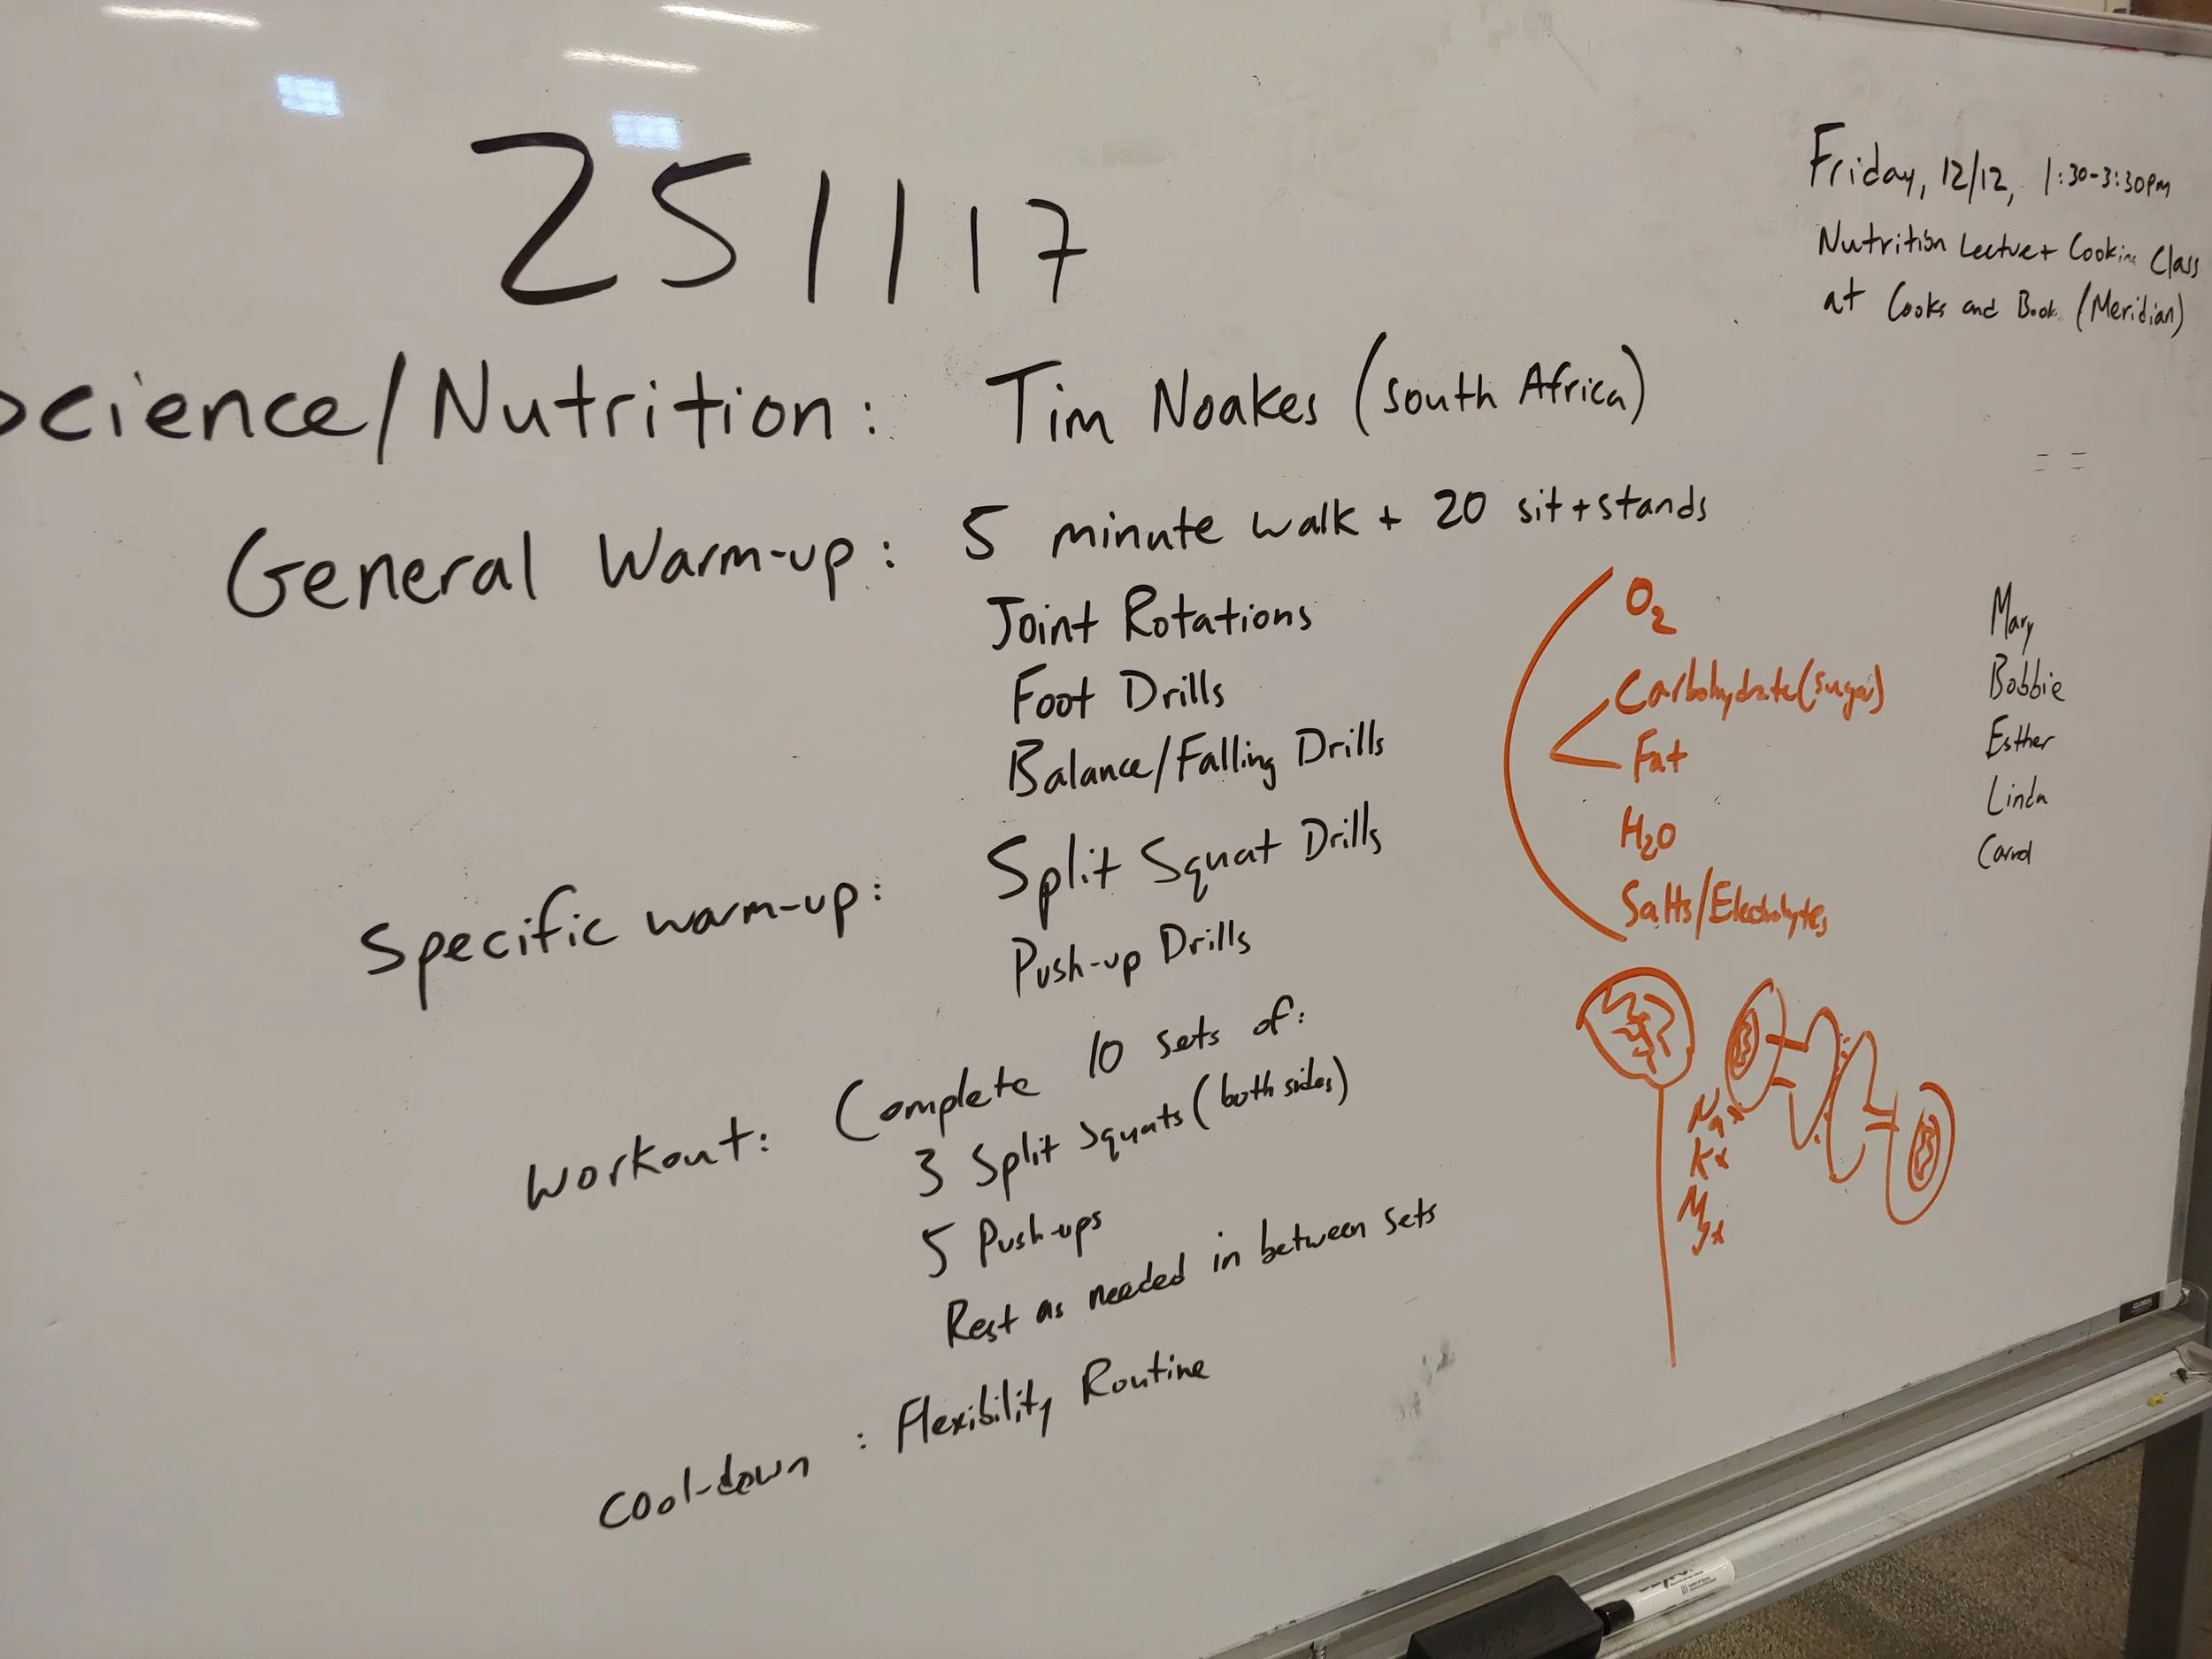 251117
Friday, 12/12, 1:30-3:30pm
Nutrition Lecture + Cooking Class
at Cooks and Book (Meridian)
Science/Nutrition: Tim Noakes (South Africa)
General Warm-up: 5 minute walk + 20 sit+stands
Joint Rotations
Foot Drills
Balance/Falling Drills
Specific warm-up: Split Squat Drills
Push-up Drills
Workout: Complete 10 sets of:
3 Split Squats (both sides)
5 Push-ups
Rest as needed in between sets
Cool-down: Flexibility Routine
O₂
Carbohydrate (sugar)
Fat
H₂O
Salts/Electrolytes
Na+
K+
Mg+
Mary
Bobbie
Esther
Linda
GLOBAL